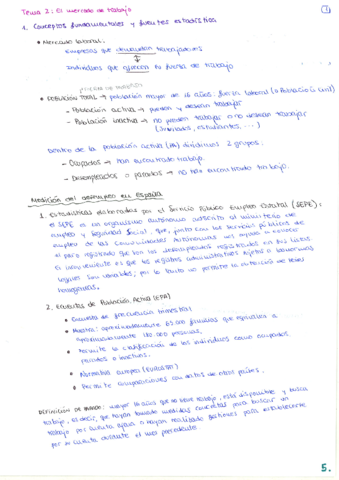 Tema 2: El mercado de trabajo
1
1. Conceptos fundamentales y fuentes estadística
• Mercado laboral:
Empresas que demandan trabajadores
Individuos que ofrecen su fuerza de trabajo
• POBLACIÓN TOTAL → población mayor de 16 años: fuerza laboral (o Población civil)
- Población activa → pueden y desean trabajar
- Población inactiva → no pueden trabajar o no desean trabajar
(jubilados, estudiantes, ...)
Dentro de la población activa (PA) dividimos 2 grupos:
- Ocupados → han encontrado trabajo.
- Desempleados o parados → no han encontrado trabajo.
Medición del desempleo en España
1. Estadísticas elaboradas por el Servicio Público Empleo Estatal (SEPE)
El SEPE es un organismo autónomo adscrito al ministerio de
empleo y Seguridad Social, que, junto con los servicios públicos de
empleo de las Comunidades Autónomas
el paro registrado que son los desempleados registrados en sus listas
El inconveniente es que los registros administrativos sujetos a
legales son variables; por lo tanto no permite la de series
homogéneas.
2. Encuestas de Población Activa (EPA)
• Encuesta de frecuencia trimestral
• Muestra: aproximadamente 65.000 familias que equivalen a
aproximadamente 180.000 personas.
• Permite la clasificación de los individuos como ocupados,
parados o inactivos.
• Normativa europea (EUROSTAT)
• Permite comparaciones con datos de otros países.
DEFINICIÓN DE PARADO: mayor 16 años que no tiene trabajo, está disponible y busca
trabajo, es decir, que hayan tomado medidas concretas para buscar un
trabajo por cuenta ajena o hayan realizado gestiones para establecerse
por su cuenta durante el mes precedente
5.